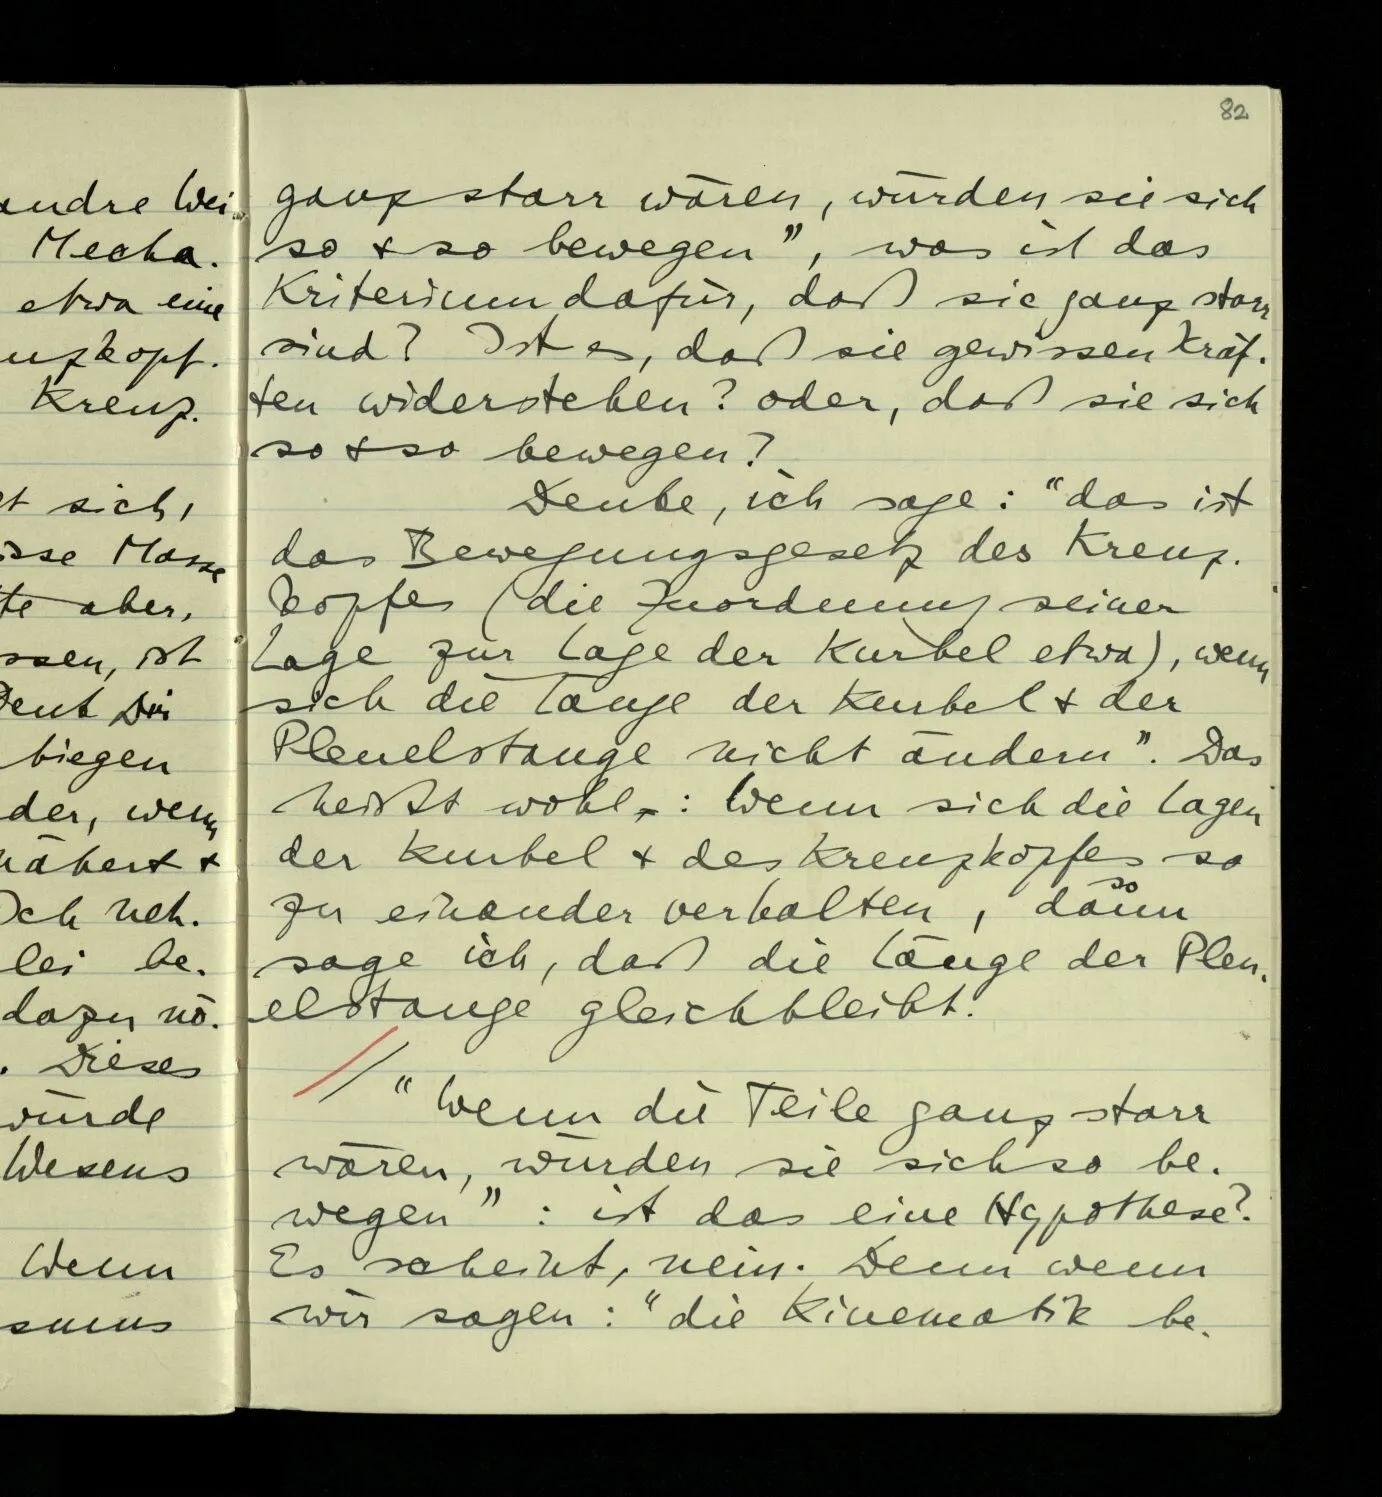 82
andre Wei
Mecha.
etwa eine
nzkopf.
Kreuz.
sich,
Masse
aber,
ssen, ist
Denk Dir
biegen
der, wenn
nähert &
Ich neh.
lei be.
dazu nö.
. Dieses
würde
Wesens
Wenn
smus
ganz starr wären, würden sie sich
so & so bewegen”, was ist das
Kriterium dafür, daß sie ganz starr
sind? Ist es, daß sie gewissen Kräf.
ten widerstehen? oder, daß sie sich
so & so bewegen?
Denke, ich sage: “das ist
das Bewegungsgesetz des Kreuz.
kopfes (die Zuordnung seiner
Lage zur Lage der Kurbel etwa), wenn
sich die Länge der Kurbel & der
Pleuelstange nicht ändern”. Das
heißt wohl: Wenn sich die Lagen
der Kurbel & des Kreuzkopfes so
zu einander verhalten, dann
so
sage ich, daß die Länge der Pleu.
elstange gleichbleibt.
// “Wenn die Teile ganz starr
wären, würden sie sich so be.
wegen”: ist das eine Hypothese?
Es scheint, nein. Denn wenn
wir sagen: “die Kinematik be.